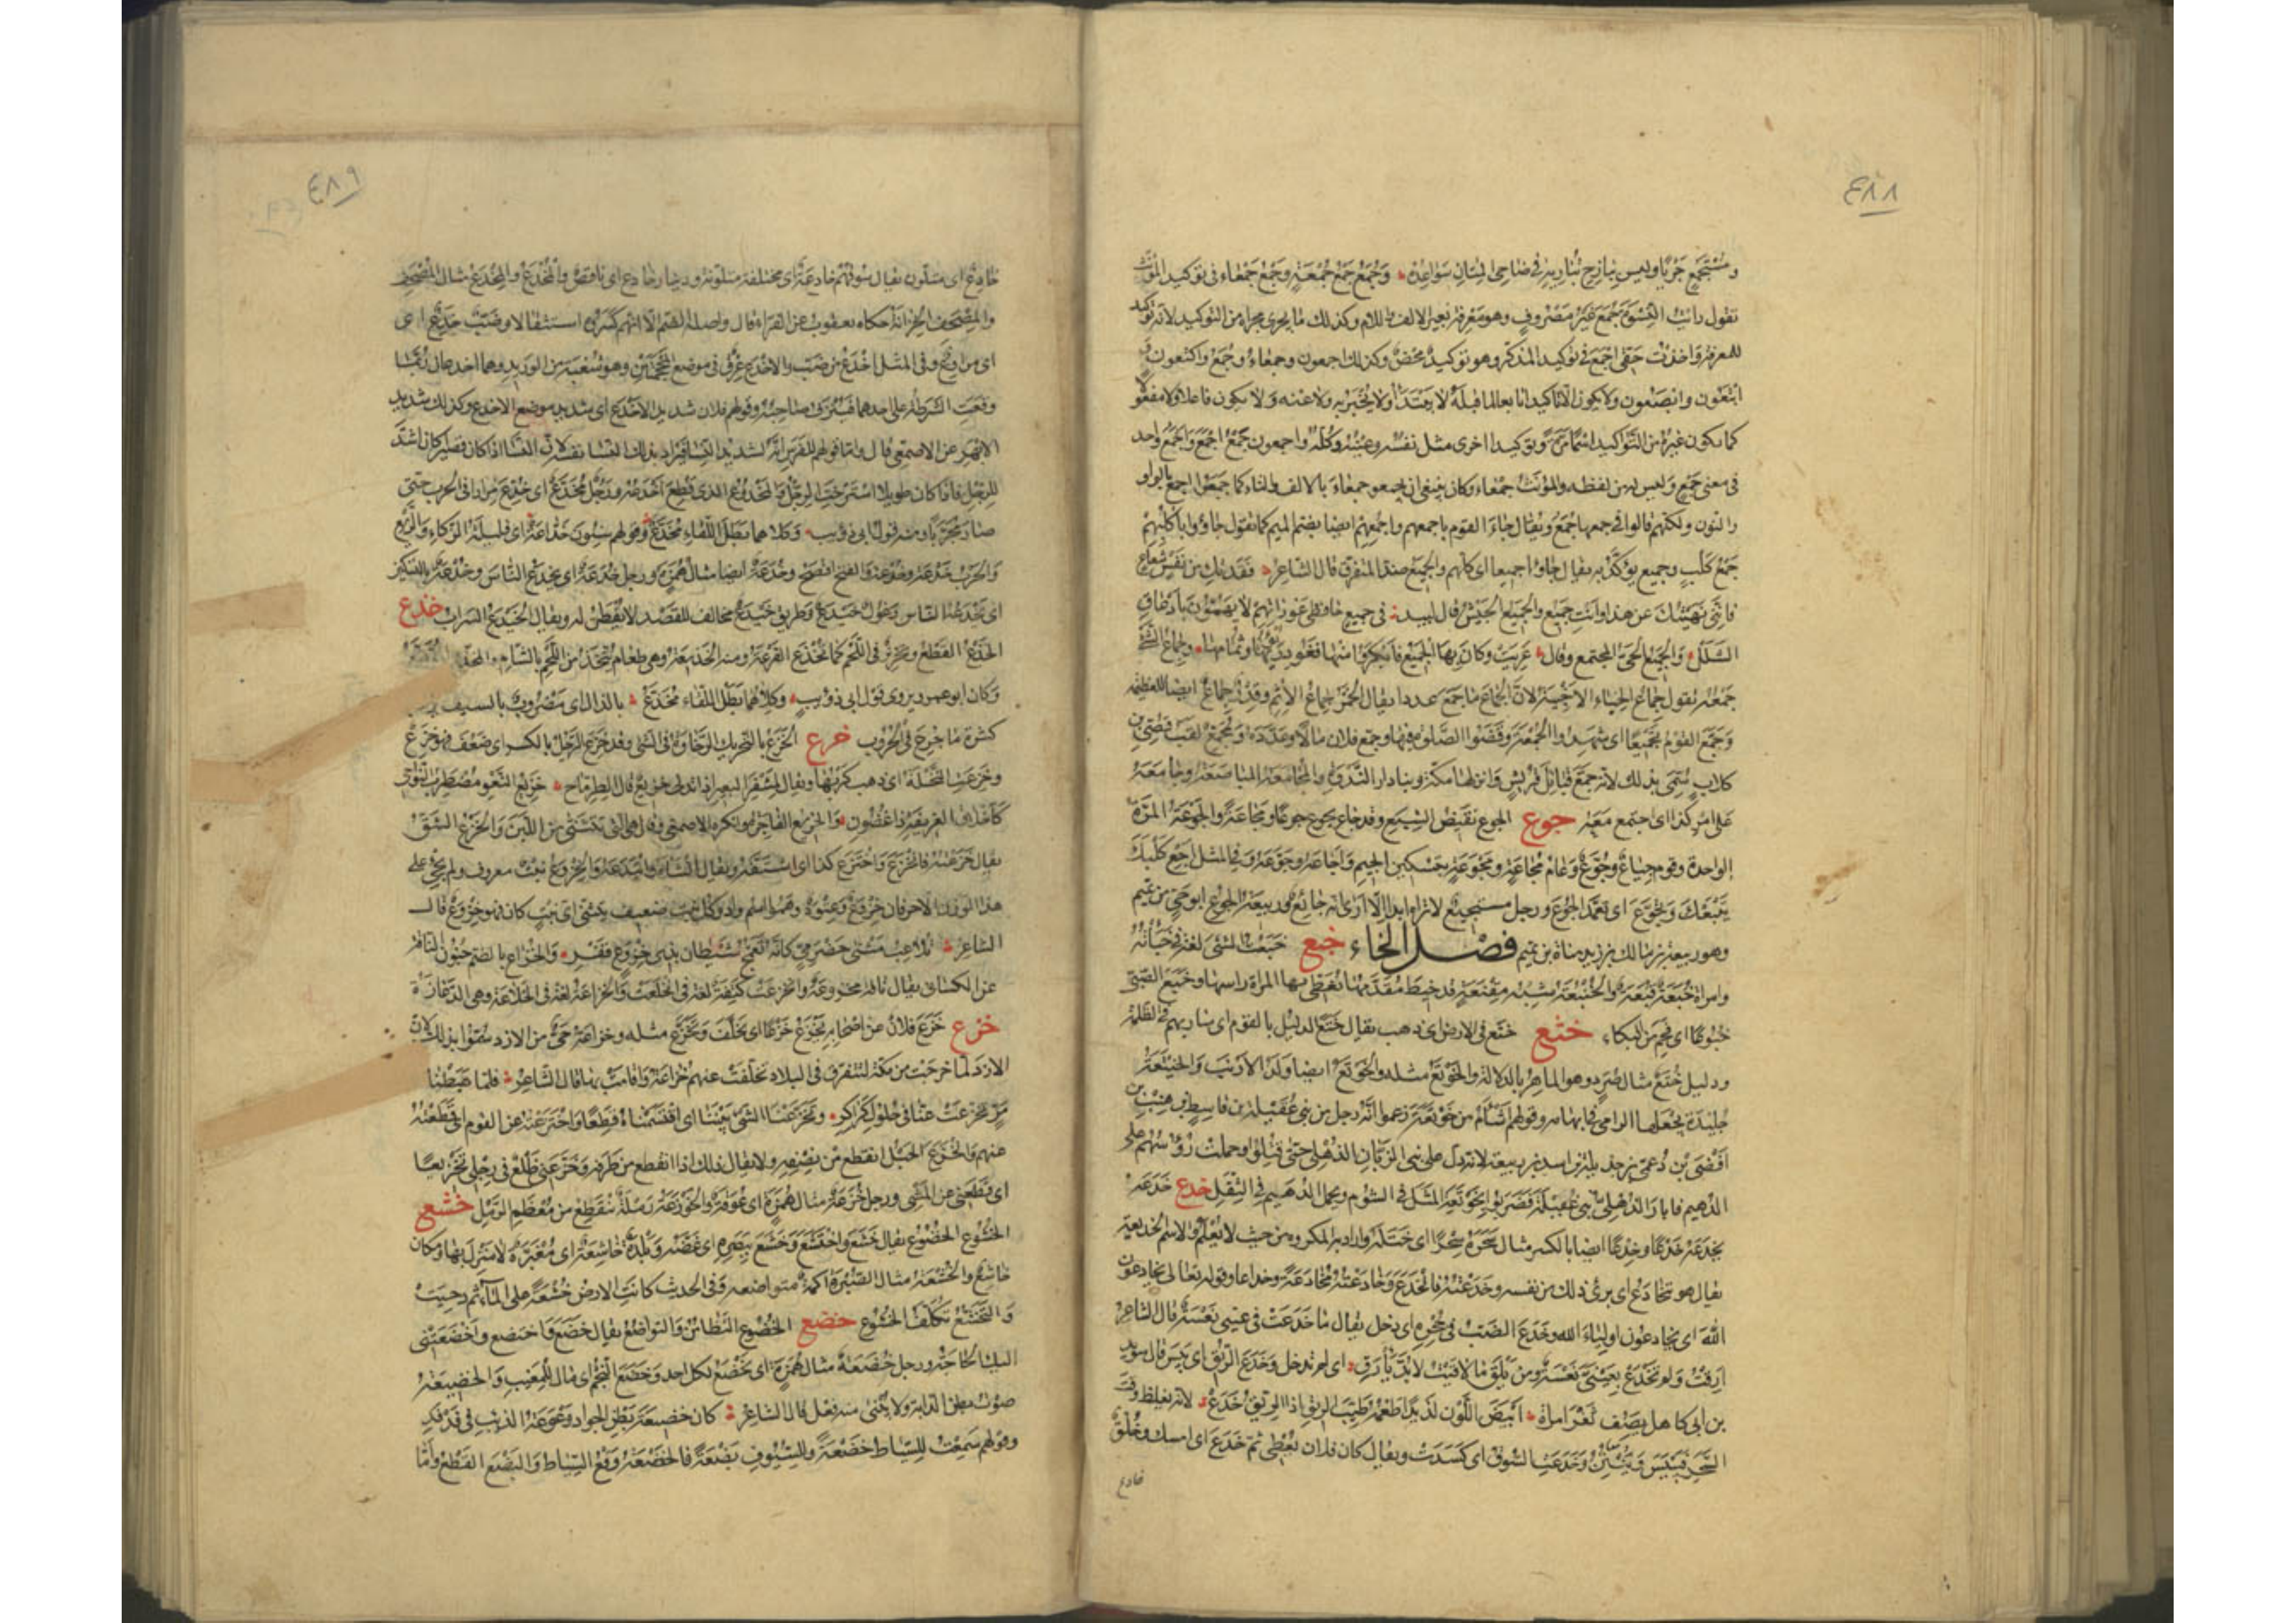 ٤٨٨
ومستجمع جريا وليس ببارح تباريه في ضاحي المتان سواعده وجمع جمع جمعة وجمع جمعاء في توكيد المؤنث
تقول رأيت النسوة جمع غير مصروف وهو معرفة بغير الالف واللام وكذلك ما يجري مجراه من التوكيد لانه توكيد
للمعرفة واخذت حقي اجمع في توكيد المذكر وهو توكيد محض وكذلك اجمعون وجمعاء وجمع واكتعون و
ابتعون وابصعون ولا يكون الا تاكيدا تابعا لما قبله لا يبتدأ ولا يخبر به ولا عنه ولا يكون فاعلا ولا مفعولا
كما يكون غيره من التواكيد اسما مرة وتوكيدا اخرى مثل نفسه وعينه وكله واجمعون جمع اجمع واجمع واحد
في معنى جمع وليس له من لفظه والمؤنث جمعاء وكان ينبغي ان يجمعوا جمعاء بالالف والتاء كما جمعوا اجمع بالواو
والنون ولكنهم قالوا في جمعها جمع ويقال جاء القوم باجمعهم واجمعهم ايضا بضم الميم كما تقول جاؤا باكلبهم
جمع كلب وجميع يؤكد به يقال جاؤا جميعا اي كلهم والجميع ضد المتفرق قال الشاعر فقدتك من نفس شعاع
فانني نهيتك عن هذا وانت جميع والجميع الجيش قال لبيد في جميع حافظي عوراتهم لا يهمون بادعاق
الشلل والجميع الحي المجتمع وقال عريت وكان بها الجميع فابكروا منها فغودر نؤيها وثمامها وجماع الشيء
جمعه تقول جماع الخباء الاخبية لان الجماع ما جمع عددا يقال الخمر جماع الاثم وقدر جماع ايضا للعظيمة
وجمع القوم تجميعا اي شهدوا الجمعة وقضوا الصلوة فيها وجمع فلان مالا وعدده ومجمع لقب قصي بن
كلاب سمي بذلك لانه جمع قبائل قريش وانزلها مكة وبنا دار الندوة والمجامعة المباضعة وجامعه
على امر كذا اي اجتمع معه جوع الجوع نقيض الشبع وقد جاع يجوع جوعا ومجاعة والجوعة المرة
الواحدة وقوم جياع وجوع وعام مجاعة ومجوعة بتسكين الجيم واجاعه وجوعه وفي المثل اجع كلبك
يتبعك وتجوع اي تعمد الجوع ورجل مستجيع لا تراه ابدا الا ترى انه جائع وربيعة الجوع ابو حي من تميم
وهو ربيعة بن مالك بن زيد مناة بن تميم فصل الخاء خبع خبعت الشيء لغة في خبأته
وامراة خبعة قبعة والخنبعة شبه مقنعة قد خيط مقدمها تغطي بها المراة راسها وخبع الصبي
خبوعا اي فحم من البكاء ختع ختع في الارض اي ذهب يقال ختع الدليل بالقوم اي سار بهم في الظلمة
ودليل ختع مثال صرد وهو الماهر بالدلالة والخوتع مثله والخوتع ايضا ولد الارنب والختيعة
جليدة يجعلها الرامي في ابهامه وقولهم اشام من خوتعة زعموا انه رجل من بني غفيلة بن قاسط بن هنب بن
افصى بن دعمي بن جديلة بن اسد بن ربيعة لانه دل على بني الزبان الذهلي حتى قتلوا وحملت رؤسهم على
الدهيم فابار الذهلي بني غفيلة فضربوا بخوتعة المثل في الشؤم وبحمل الدهيم في الثقل خدع خدعه
يخدعه خدعا وخدعا ايضا بالكسر مثال سحره سحرا اي ختله واراد به المكروه من حيث لا يعلم والاسم الخديعة
يقال هو يتخادع اي يرى ذلك من نفسه وخدعته فانخدع وخادعته مخادعة وخداعا وقوله تعالى يخادعون
الله اي يخادعون اولياء الله وخدع الضب في جحره اي دخل يقال ما خدعت في عيني نعسة قال الشاعر
ارقت ولم تخدع بعيني نعسة ومن يلق ما لاقيت لا بد يأرق اي لم تدخل وخدع الريق اي يبس قال سويد
بن ابي كاهل يصف ثغر امراة ابيض اللون لذيذا طعمه طيب الريق اذا الريق خدع لانه يغلظ وقت
السحر فييبس وينتن وخدعت السوق اي كسدت ويقال كان فلان يعطي ثم خدع اي امسك وخلق
خادع
٤٨٩
خادع اي متلون يقال سوقهم خادعة اي مختلفة متلونة ودينار خادع اي ناقص والمخدع والمخدع مثال المصحف
والمصحف الخزانة حكاه يعقوب عن الفراء قال واصله الضم الا انهم كسروه استثقالا وضب خدع اي
اي مراوغ وفي المثل اخدع من ضب والاخدع عرق في موضع المحجمتين وهو شعبة من الوريد وهما اخدعان ربما
وقعت الشرطة على احدهما فينزف صاحبه وقولهم فلان شديد الاخدع اي شديد موضع الاخدع وكذلك شديد
الابهر عن الاصمعي قال واما قولهم للفرس انه لشديد النسا فيراد بذلك النسا نفسه لان النسا اذا كان قصيرا كان اشد
للرجل فاذا كان طويلا استرخت الرجل والمخدوع الذي قطع اخدعه ورجل مخدع اي خدع مرارا في الحرب حتى
صار مجربا ومنه قول ابي ذؤيب وكلاهما بطل اللقاء مخدع وقولهم سنون خداعة اي قليلة الزكاء والريع
والحرب خدعة وخدعة والفتح افصح وخدعة ايضا مثال همزة ورجل خدعة اي يخدع الناس وخدعة بالتسكين
اي يخدعه الناس وغول خيدع وطريق خيدع مخالف للقصد لا يفطن له ويقال الخيدع السراب خذع
الخذع القطع وتحزيز في اللحم كما تخذع القرعة ومنه الخذيعة وهي طعام يتخذ من اللحم بالشام
وكان ابو عمرو يروي قول ابي ذؤيب وكلاهما بطل اللقاء مخذع بالذال اي مضروب بالسيف
كثرة ما جرح في الحروب خرع الخرع بالتحريك الرخاوة في الشيء وقد خرع الرجل بالكسر اي ضعف فهو خرع
وخرعت النخلة اي ذهب كربها ويقال لمشفر البعير اذا تدلى خريع قال الطرماح خريع النعو مضطرب النواحي
كاخلاق الغريفة ذا غضون والخريع الفاجرة وانكره الاصمعي وقال هي التي تتثنى من اللين والخرع الشق
يقال خرعته فانخرع واخترع كذا اي اشتقه ويقال انشاه وابتدعه والخروع نبت معروف ولم يجئ على
هذا الوزن الا حرفان خروع وعتود وهو اسم واد وكل نبت ضعيف يتثنى اي نبت كان فهو خروع قال
الشاعر تلاعب مثنى حضرمي كانه تعمج شيطان بذي خروع قفر والخراع بالضم جنون الناقة
عن الكسائي يقال ناقة مخروعة وانخرعت كتفه لغة في انخلعت والخراعة لغة في الخلاعة وهي الدعارة
خزع خزع فلان عن اصحابه يخزع خزعا اي تخلف وتخزع مثله وخزاعة حي من الازد سموا بذلك لان
الازد لما خرجت من مكة لتتفرق في البلاد تخلفت عنهم خزاعة واقامت بها قال الشاعر فلما هبطنا
مر تخزعت عنا في حلول كراكر وتخزعنا الشيء بيننا اي اقتسمناه قطعا واختزعته عن القوم اي قطعته
عنهم وانخزع الحبل انقطع من نصفه ولا يقال ذلك اذا انقطع من طرفه وخزعني ظلع في رجلي تخزيعا
اي قطعني عن المشي ورجل خزعة مثال همزة اي عوقة والخوزعة رملة تنقطع من معظم الرمل خشع
الخشوع الخضوع يقال خشع واختشع وخشع ببصره اي غضه وبلدة خاشعة اي مغبرة لا منزل بها ومكان
خاشع والخشعة مثال الصبرة اكمة متواضعة وفي الحديث كانت الارض خشعة على الماء ثم دحيت
والتخشع تكلف الخشوع خضع الخضوع التطامن والتواضع يقال خضع واختضع واخضعتني
اليك الحاجة ورجل خضعة مثال همزة اي يخضع لكل احد وخضع النجم اي مال للمغيب والخضيعة
صوت بطن الدابة ولا يبنى منه فعل قال الشاعر كان خضيعة بطن الجواد وعوعة الذئب في فدفد
وقولهم سمعت للسياط خضعة وللسيوف بضعة فالخضعة وقع السياط والبضع القطع واما